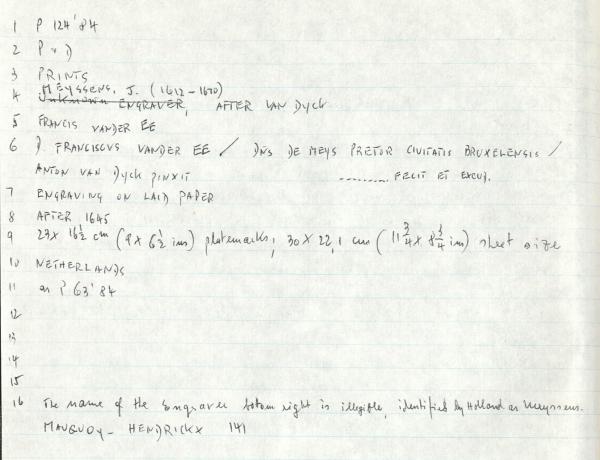 1 P 124'84
2 P + D
3 PRINTS
MEYSSENS, J. (1612-1670)
4 Unknown ENGRAVER, AFTER VAN DYCK
5 FRANCIS VANDER EE
6 D. FRANCISCVS VANDER EE / DNS DE MEYS PRETOR CIVITATIS BRUXELENSIS /
ANTON VAN DYCK PINXIT .......... FECIT ET EXCUD.
7 ENGRAVING ON LAID PAPER
8 AFTER 1645
9 23 X 16½ cm (9 X 6½ ins) platemarks; 30 X 22,1 cm (11¾ X 8¾ in) sheet size
10 NETHERLANDS
11 as P 63'84
12
13
14
15
16 The name of the Engraver bottom right is illegible, identified by Holland as Meyssens.
MAUQUOY-HENDRICKX 141